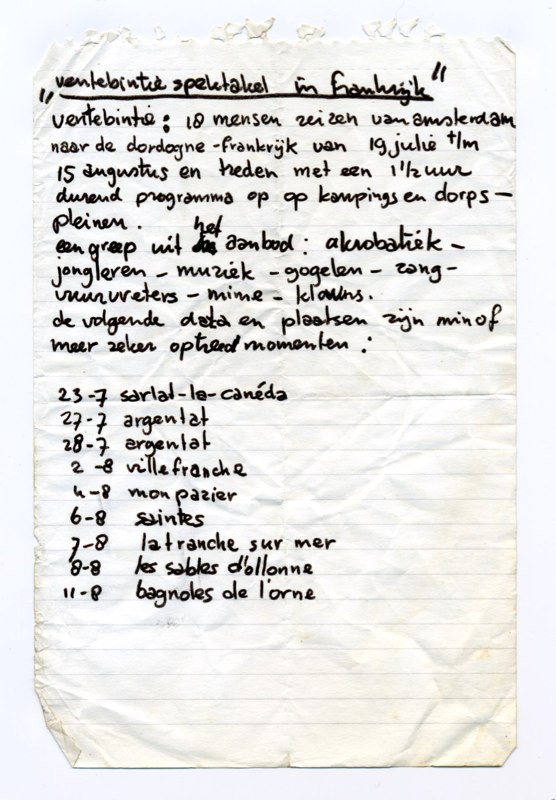 "ventebintie spektakel in frankrijk"
ventebintie: 18 mensen reizen van amsterdam
naar de dordogne-frankrijk van 19 julie t/m
15 augustus en treden met een 1½ uur
durend programma op op kampings en dorps-
pleinen. het
een greep uit aanbod: akrobatiek -
jongleren - muziek - gogelen - zang -
vuurvreters - mime - klowns.
de volgende data en plaatsen zijn min of
meer zeker optreed momenten:
23-7 sarlat-la-canéda
27-7 argentat
28-7 argentat
2-8 villefranche
4-8 monpazier
6-8 saintes
7-8 la tranche sur mer
8-8 les sables d'ollonne
11-8 bagnoles de l'orne